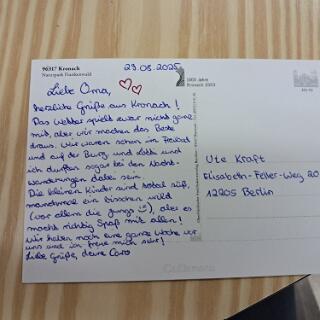 96317 Kronach
Naturpark Frankenwald
29.08.2025
1000 Jahre
Kronach 2003
Liebe Oma,
herzliche Grüße aus Kronach!
Das Wetter spielt zwar nicht ganz
mit, aber wir machen das Beste
draus. Wir waren schon im Freibad
und auf der Burg und Lotte und
ich durften sogar bei den Nacht-
wanderungen dabei sein.
Die kleinen Kinder sind total süß,
manchmal ein bisschen wild
(vor allem die Jungs), aber es
macht richtig Spaß mit allen!
Wir haben noch eine ganze Woche vor
uns und ich freue mich sehr!
Liebe Grüße, deine Caro
Ute Kraft
Elisabeth-Feller-Weg 20
12205 Berlin